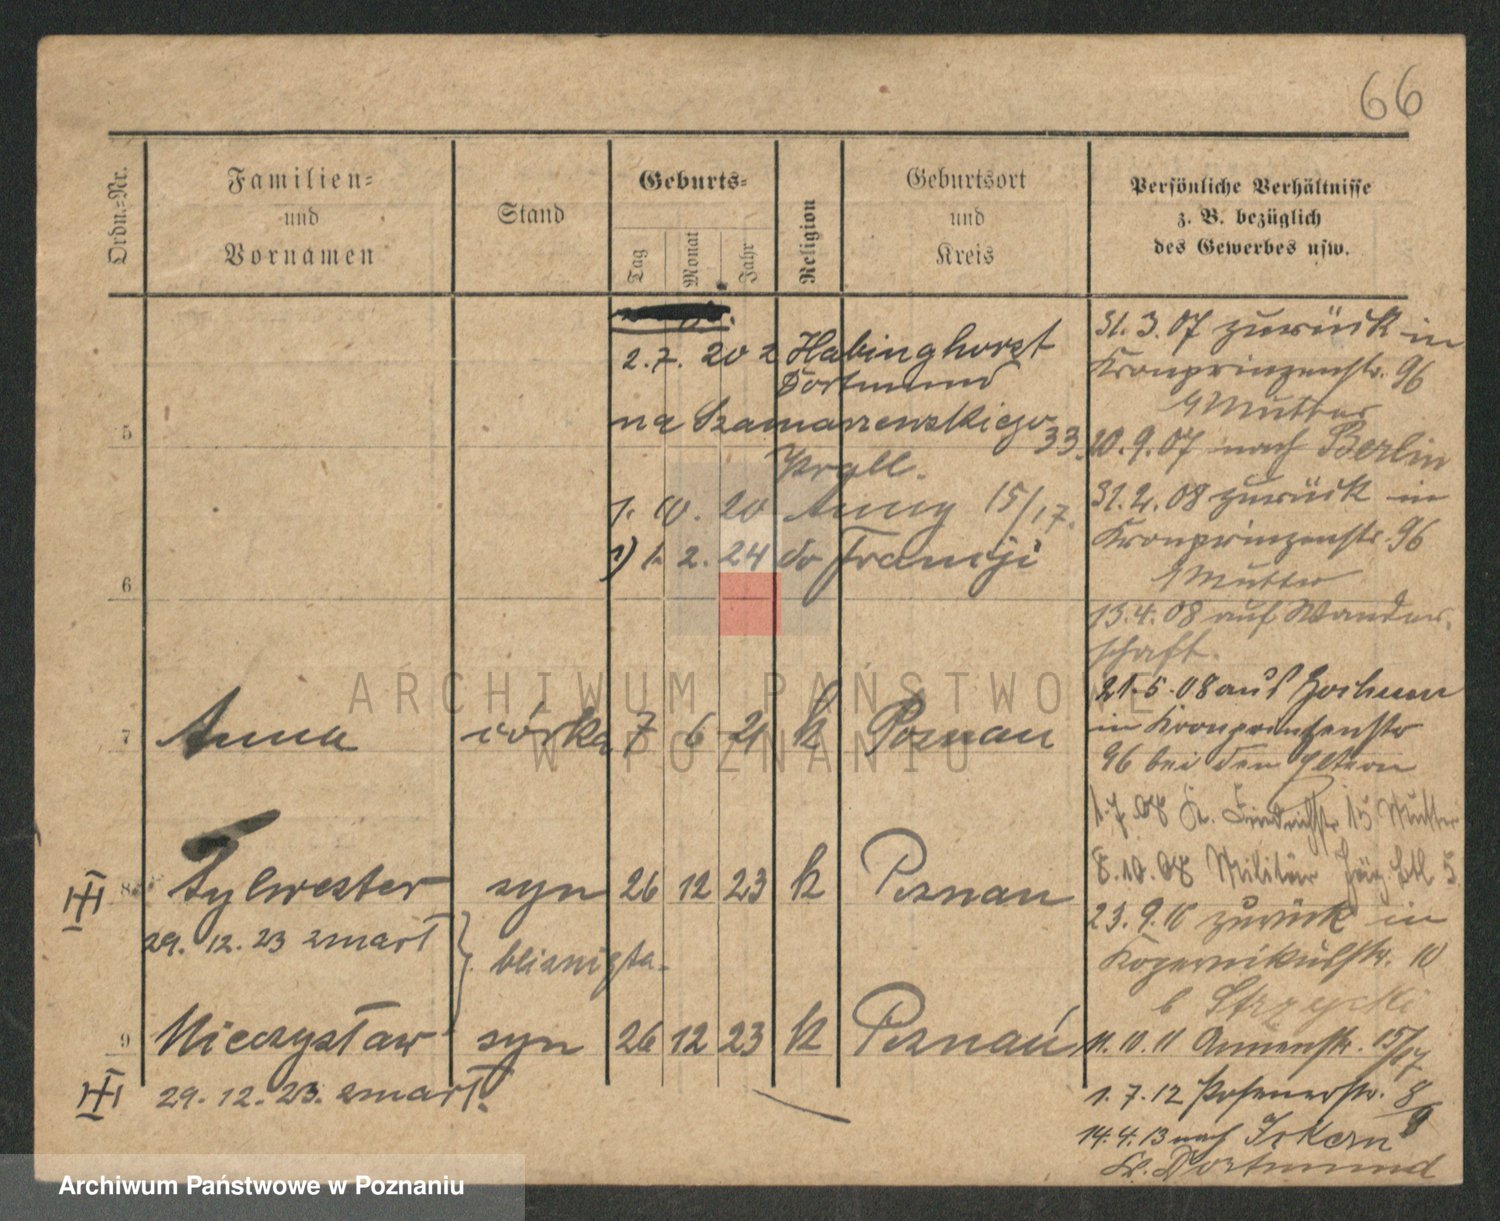 66
Ordn.-Nr.
Familien-
und
Vornamen
Stand
Geburts-
Tag
Monat
Jahr
Religion
Geburtsort
und
Kreis
Persönliche Verhältnisse
z. B. bezüglich
des Gewerbes usw.
2.7. 20 z Habinghorst
Dortmund
na Szamarzewskiego
33.
1. 10. 20 Anny 15/17.
1) 1. 2. 24 do Francji
5
6
7 Anna córka 7 6 21 k Poznan
8 Sylwester syn 26 12 23 k Poznan
29. 12. 23 zmarł
bliznięta.
9 Mieczysław syn 26 12 23 k Poznań
29. 12. 23. zmarł.
31. 3. 07 zurück in
Kronprinzenstr. 96
Mutter
20. 9. 07 nach Berlin
31. 2. 08 zurück in
Kronprinzenstr. 96
Mutter
13. 4. 08 auf Wander-
schaft.
21. 5. 08 aus Bochum
in Kronprinzenstr
96 bei den Eltern
1. 7. 08 Friedrichstr 15 Mutter
8. 10. 08 Militär 5
23. 9. 10 zurück in
Kopernikusstr. 10
b Strzycki
11. 10. 11 Annenstr. 15/17
1. 7. 12 Posenerstr. 8/9
14. 4. 13 nach Ickern
Kr. Dortmund
ARCHIWUM PAŃSTWOWE
W POZNANIU
Archiwum Państwowe w Poznaniu